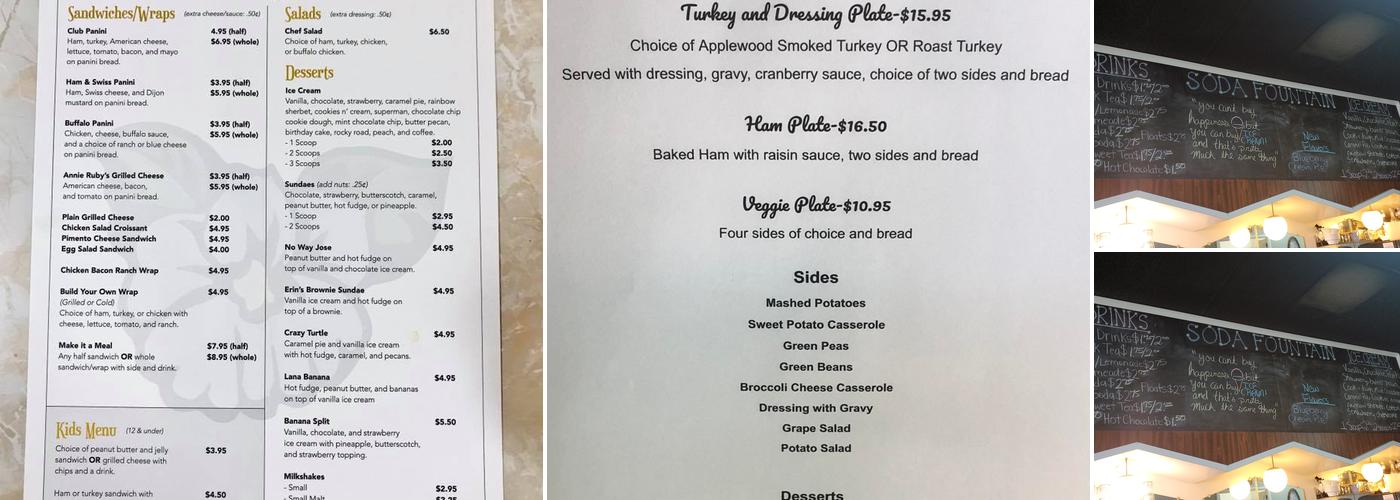 Sandwiches/Wraps (extra cheese/sauce: .50¢)
Club Panini 4.95 (half)
Ham, turkey, American cheese, $6.95 (whole)
lettuce, tomato, bacon, and mayo
on panini bread.
Ham & Swiss Panini $3.95 (half)
Ham, Swiss cheese, and Dijon $5.95 (whole)
mustard on panini bread.
Buffalo Panini $3.95 (half)
Chicken, cheese, buffalo sauce, $5.95 (whole)
and a choice of ranch or blue cheese
on panini bread.
Annie Ruby's Grilled Cheese $3.95 (half)
American cheese, bacon, $5.95 (whole)
and tomato on panini bread.
Plain Grilled Cheese $2.00
Chicken Salad Croissant $4.95
Pimento Cheese Sandwich $4.95
Egg Salad Sandwich $4.00
Chicken Bacon Ranch Wrap $4.95
Build Your Own Wrap $4.95
(Grilled or Cold)
Choice of ham, turkey, or chicken with
cheese, lettuce, tomato, and ranch.
Make it a Meal $7.95 (half)
Any half sandwich OR whole $8.95 (whole)
sandwich/wrap with side and drink.
Kids Menu (12 & under)
Choice of peanut butter and jelly $3.95
sandwich OR grilled cheese with
chips and a drink.
Ham or turkey sandwich with $4.50
Salads (extra dressing: .50¢)
Chef Salad $6.50
Choice of ham, turkey, chicken,
or buffalo chicken.
Desserts
Ice Cream
Vanilla, chocolate, strawberry, caramel pie, rainbow
sherbet, cookies n' cream, superman, chocolate chip
cookie dough, mint chocolate chip, butter pecan,
birthday cake, rocky road, peach, and coffee.
- 1 Scoop $2.00
- 2 Scoops $2.50
- 3 Scoops $3.50
Sundaes (add nuts: .25¢)
Chocolate, strawberry, butterscotch, caramel,
peanut butter, hot fudge, or pineapple.
- 1 Scoop $2.95
- 2 Scoops $4.50
No Way Jose $4.95
Peanut butter and hot fudge on
top of vanilla and chocolate ice cream.
Erin's Brownie Sundae $4.95
Vanilla ice cream and hot fudge on
top of a brownie.
Crazy Turtle $4.95
Caramel pie and vanilla ice cream
with hot fudge, caramel, and pecans.
Lana Banana $4.95
Hot fudge, peanut butter, and bananas
on top of vanilla ice cream
Banana Split $5.50
Vanilla, chocolate, and strawberry
ice cream with pineapple, butterscotch,
and strawberry topping.
Milkshakes
- Small $2.95
- Small Malt
Turkey and Dressing Plate-$15.95
Choice of Applewood Smoked Turkey OR Roast Turkey
Served with dressing, gravy, cranberry sauce, choice of two sides and bread
Ham Plate-$16.50
Baked Ham with raisin sauce, two sides and bread
Veggie Plate-$10.95
Four sides of choice and bread
Sides
Mashed Potatoes
Sweet Potato Casserole
Green Peas
Green Beans
Broccoli Cheese Casserole
Dressing with Gravy
Grape Salad
Potato Salad
Desserts
DRINKS
SODA FOUNTAIN
ICE CREAM
"you can't buy
happiness
you can buy ICE CREAM!
and that's pretty
much the same thing"
Floats $2.75
Hot Chocolate $1.50
New
Flavors
Blueberry
DRINKS
SODA FOUNTAIN
ICE CREAM
"you can't buy
happiness
you can buy ICE CREAM!
and that's pretty
much the same thing"
Floats $2.75
Hot Chocolate $1.50
New
Flavors
Blueberry